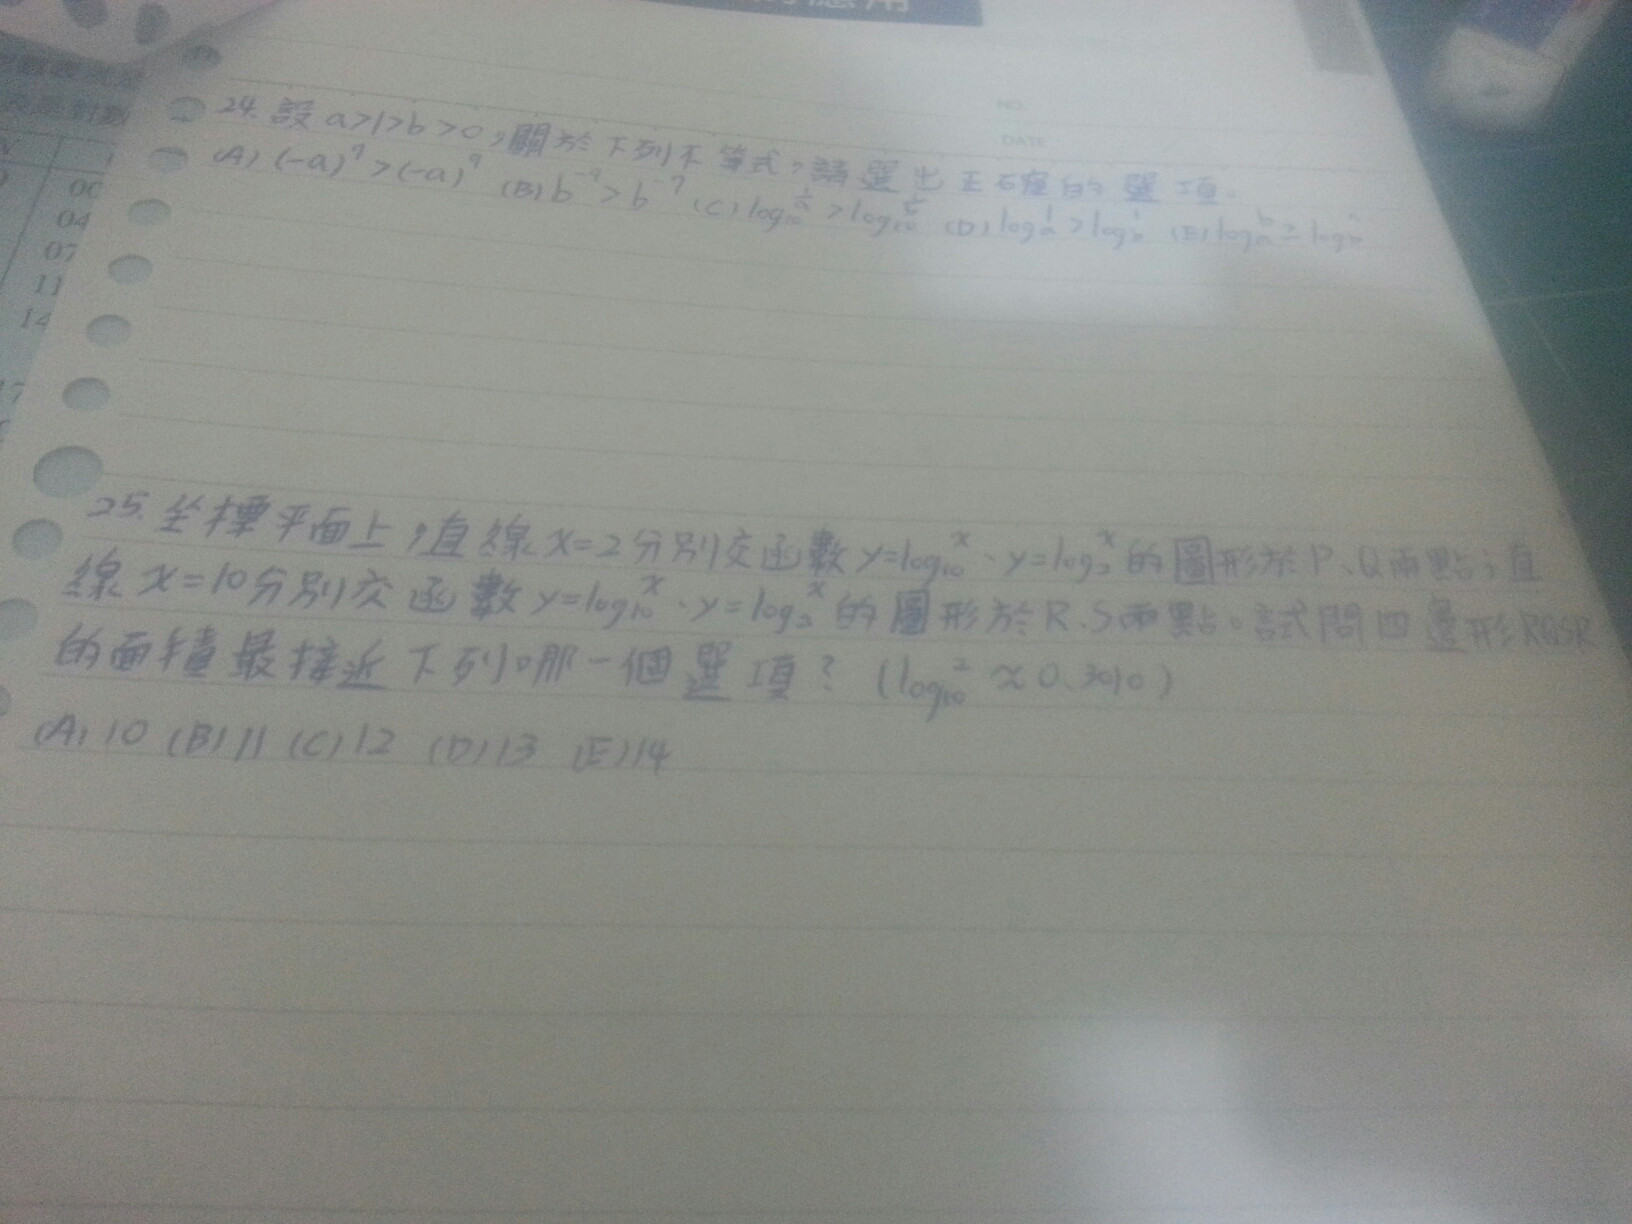 應用
NO.
DATE
00
04
07
11
14
17
24. 設a>1>b>0,關於下列不等式,請選出正確的選項.
(A) (-a)⁷>(-a)⁹ (B) b⁻⁹>b⁻⁷ (C) log₁₀ > log₁₀ (D) logₐ¹ > log_b¹ (E) logₐᵇ ≥ log_bᵃ
25. 坐標平面上,直線x=2分別交函數y=log₁₀ˣ、y=log₂ˣ的圖形於P、Q兩點;直
線x=10分別交函數y=log₁₀ˣ、y=log₂ˣ的圖形於R、S兩點。試問四邊形
的面積最接近下列哪一個選項?(log₁₀²≈0.3010)
(A) 10 (B) 11 (C) 12 (D) 13 (E) 14